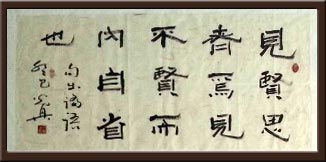 見賢思
齊焉見
不賢而
內自省
也
句出論語